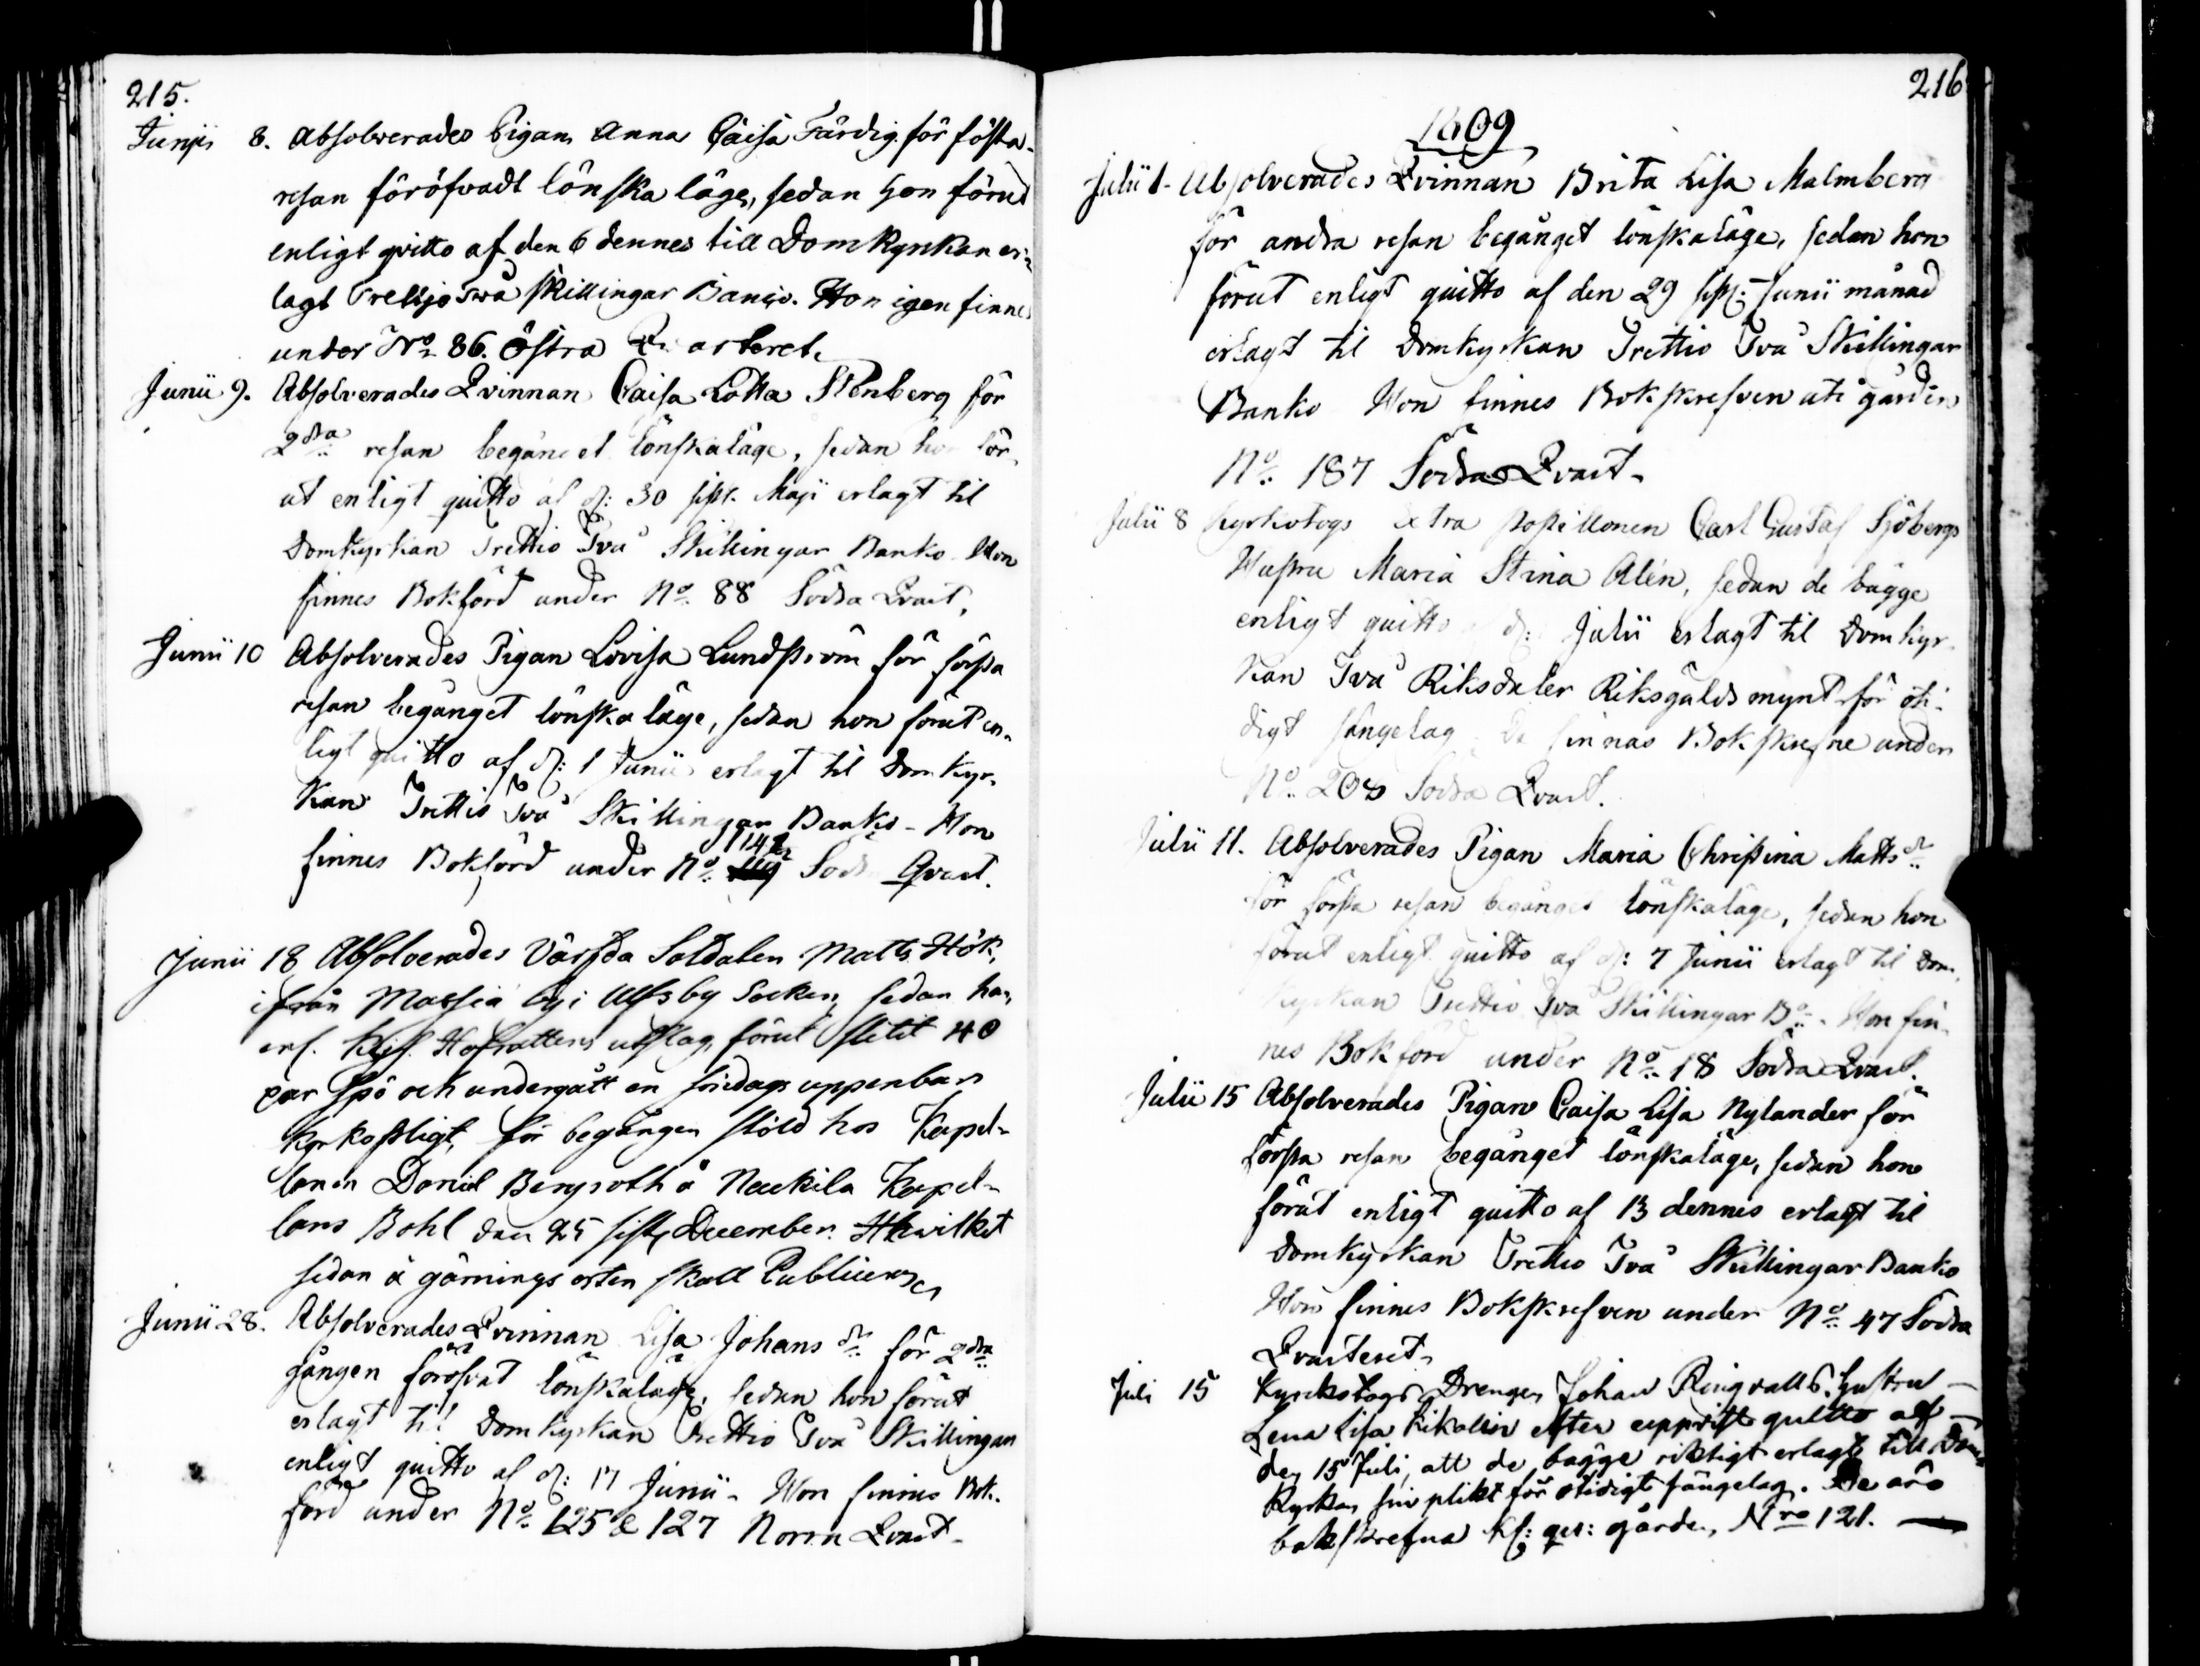 215.
Junji 8. Absolverades Pigan Anna Caisa Färdig för första
resan föröfvadt lönskaläge, sedan hon förut
enligt qvitto af den 6 dennes till Domkyrkan er-
lagt Trettjo Två skillingar Banco. Hon igen finnes
under No 86. Östra Qvarteret.
Junii 9. Absolverades Qvinnan Caisa Lotta Stenberg för
2dra resan begånget lönskaläge, sedan hon för-
ut enligt quitto af d: 30 sistl. Maji erlagt til
Domkyrkan Trettio Två Skillingar Banko. Hon
finnes Bokförd under No 88 Södra Qvart.
Junii 10 Absolverades Pigan Lovisa Lundström för första
resan begånget lönskaläge, sedan hon förut en-
ligt quitto af d: 1 Junii erlagt til Domkyr-
kan Trettio Två Skillingar Banko - Hon
finnes Bokförd under No 142 Södra Qvart.
Junii 18 Absolverades Värfda Soldaten Matts Hök,
ifrån Massia by i Ulfsby Socken, sedan han,
enl. Kejs. Hofrättens utslag förut slitit 40
par spö och undergått en söndags uppenbar
kyrkopligt, för begången stöld hos Kapel-
lanen Daniel Bergroth å Nackila Kapel-
lans Bohl den 25 sistl. December. Hwilket
sedan å gärnings orten skall Publiceras
Junii 28. Absolverades Qvinnan Lisa Johans dr för 2dra
gången föröfvat lönskaläge, sedan hon förut
erlagt til Domkyrkan Trettio Två Skillingar
enligt quitto af d: 17 Junii - Hon finnes Bok-
förd under No 125 & 127 Norra Qvart -
216
1809
Julii 1. Absolverades Qvinnan Brita Lisa Malmberg
för andra resan begånget lönskaläge, sedan hon
förut enligt quitto af den 29 sistl: Junii månad
erlagt til Domkyrkan Trettio Två Skillingar
Banko Hon finnes Bokskrefven uti gården
No 187 Södra Qvart -
Julii 8 Kyrkotogs Extra Postillonen Carl Gustaf Sjöbergs
Hustru Maria Stina Alén, sedan de bägge
enligt quitto af d: Julii erlagt til Domkyr-
kan Två Riksdaler Riksgälds mynt för oti-
digt sängelag. De finnas Bokskrefne under
No 208 Södra Qvart.
Julii 11. Absolverades Pigan Maria Christina Matts dr
för första resan begånget lönskaläge, sedan hon
förut enligt quitto af d: 7 Junii erlagt til Dom-
kyrkan Trettio Två Skillingar Bo - Hon fin-
nes Bokförd under No 18 Södra Qvart.
Julii 15 Absolverades Pigan Caisa Lisa Nylander för
första resan begånget lönskaläge, sedan hon
förut enligt quitto af 13 dennes erlagt til
Domkyrkan Trettio Två Skillingar Banko
Hon finnes Bokskrefven under No 47 Södra
Qvarteret -
Juli 15 Kyrckotogs Drengen Johan Ringvalls Hustru
Lena Lisa efter uppvist quitto af
den 15 Juli, att de bägge riktigt erlagt till Dom
kyrkan sin plikt för otidigt sängelag. De äro
bokskrefna gården, Nro 121. —